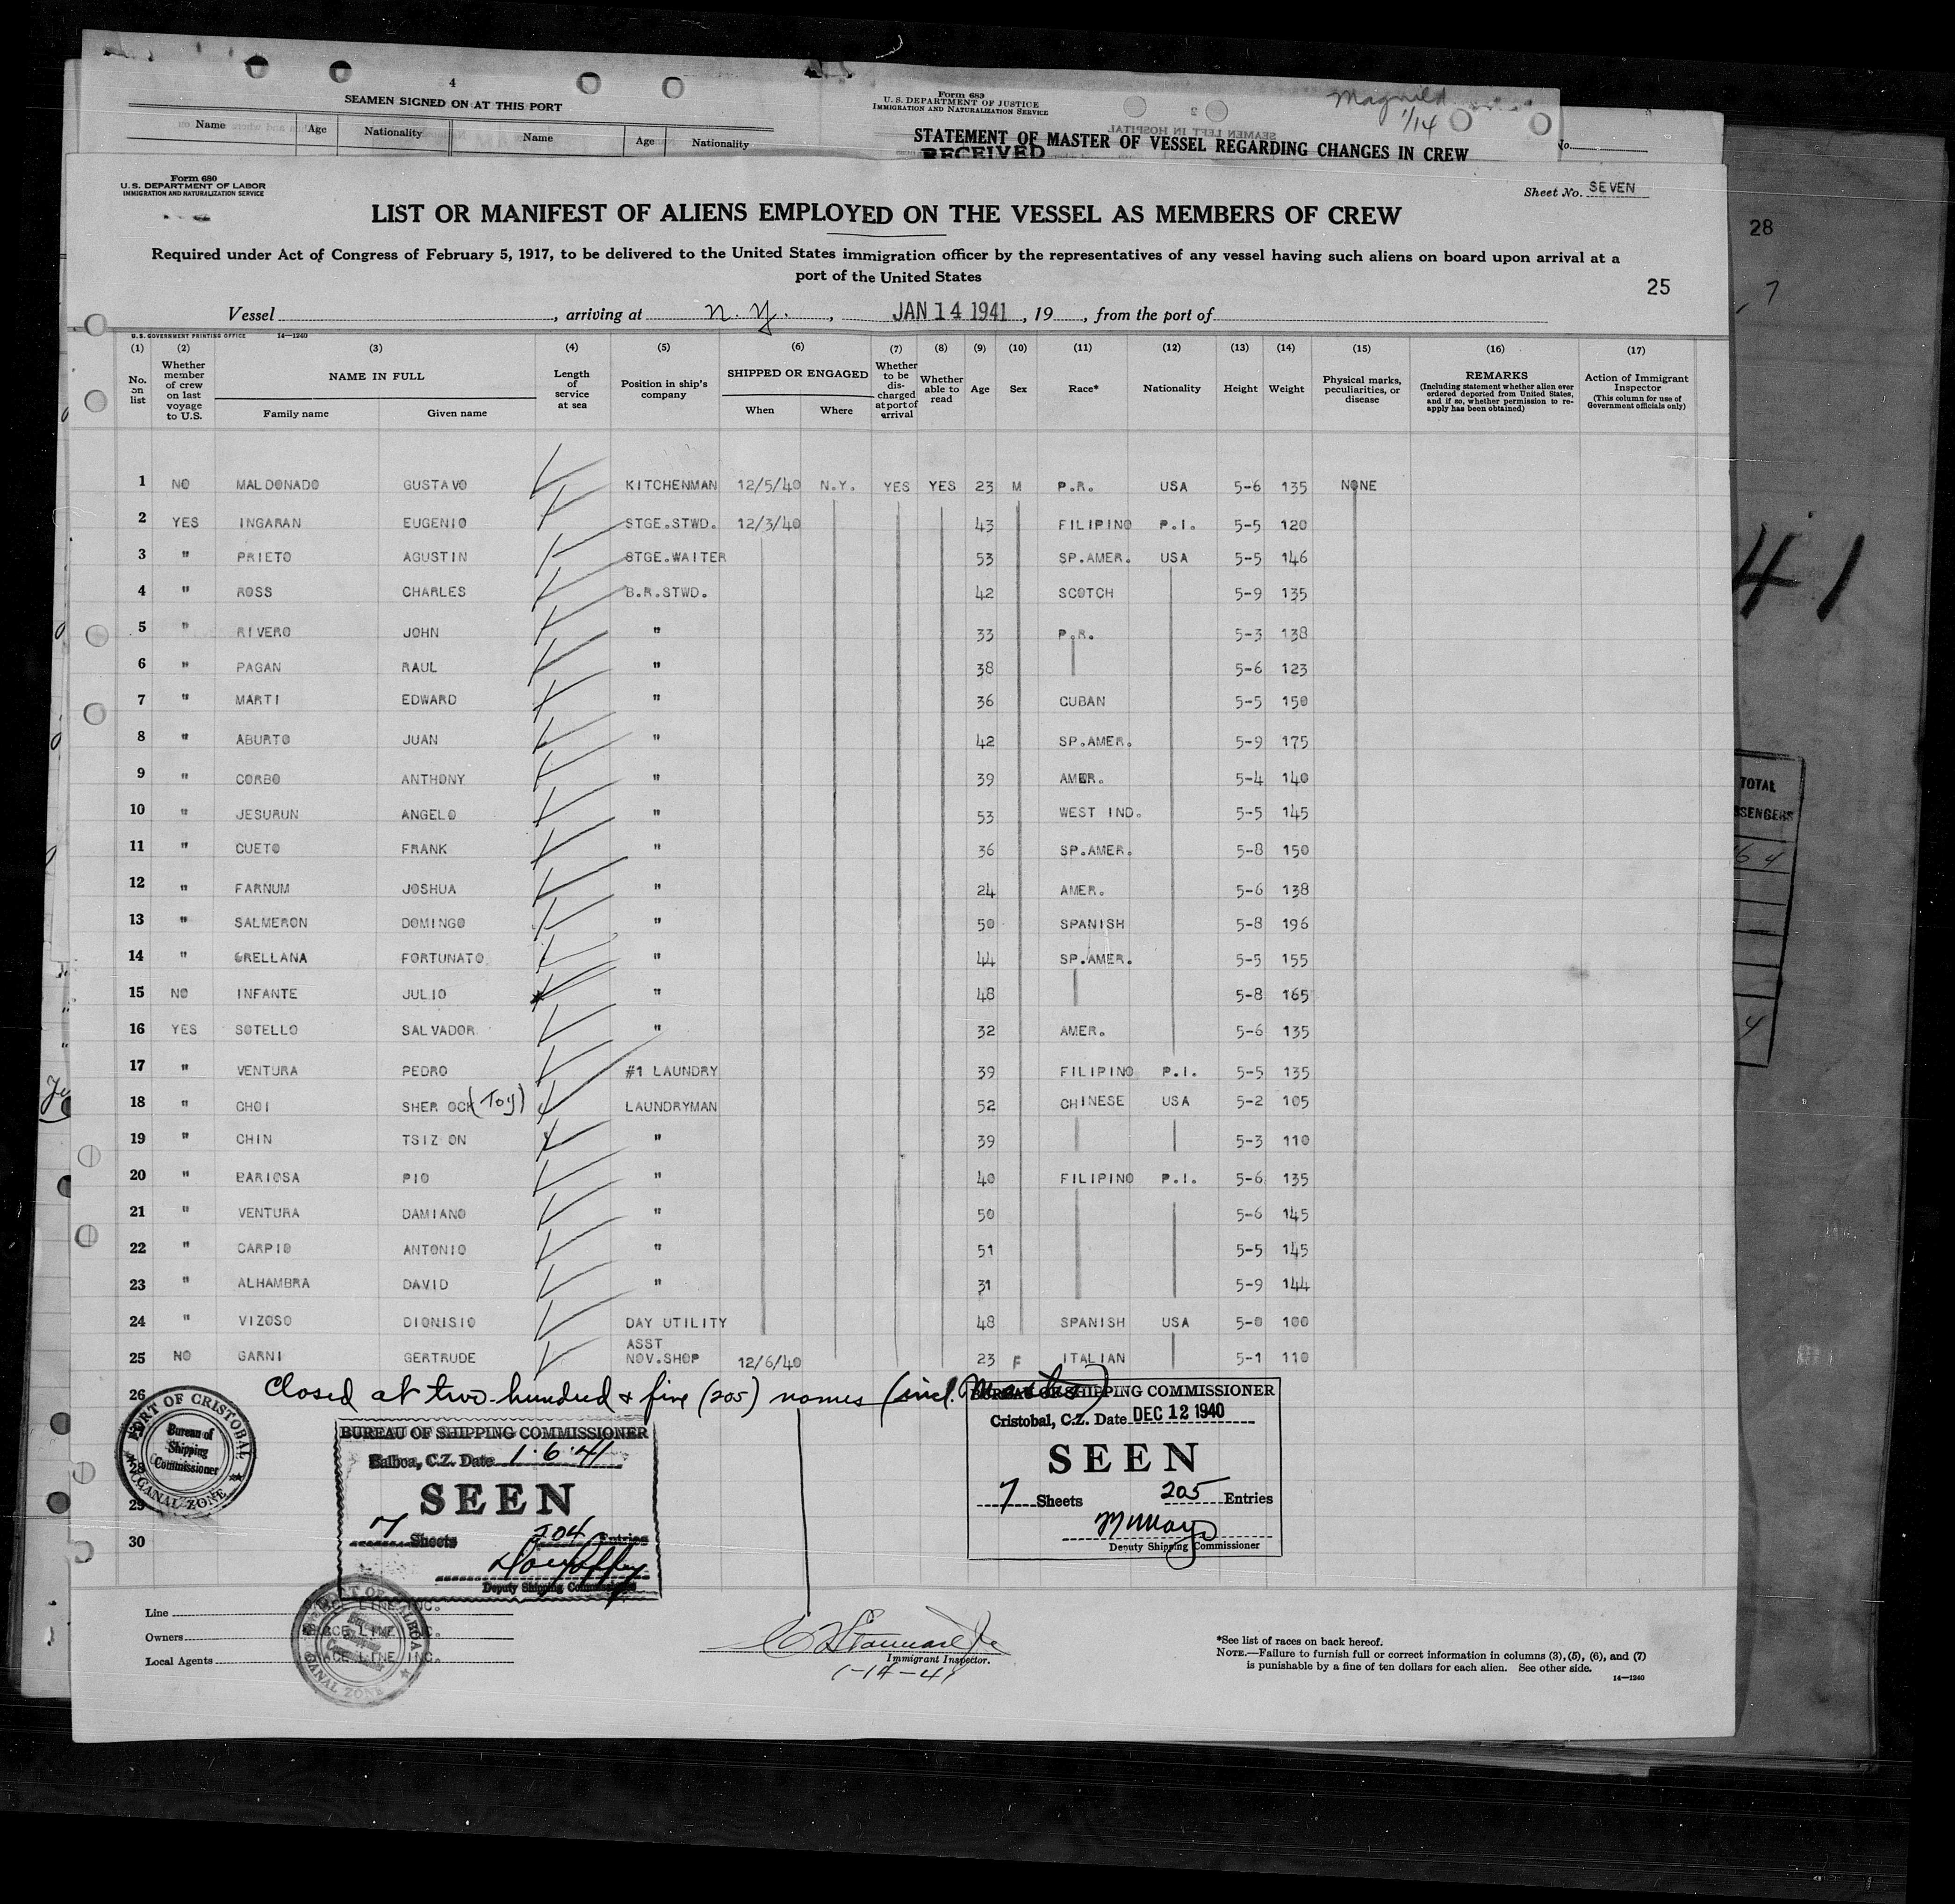 4
SEAMEN SIGNED ON AT THIS PORT
Name Age Nationality Name Age Nationality
Form 689
U. S. DEPARTMENT OF JUSTICE
IMMIGRATION AND NATURALIZATION SERVICE
1/14
STATEMENT OF MASTER OF VESSEL REGARDING CHANGES IN CREW
RECEIVED
No.
Form 680
U. S. DEPARTMENT OF LABOR
IMMIGRATION AND NATURALIZATION SERVICE
Sheet No. SEVEN
LIST OR MANIFEST OF ALIENS EMPLOYED ON THE VESSEL AS MEMBERS OF CREW
28
Required under Act of Congress of February 5, 1917, to be delivered to the United States immigration officer by the representatives of any vessel having such aliens on board upon arrival at a
port of the United States
25
Vessel , arriving at N. Y. , JAN 14 1941 , 19 , from the port of
U. S. GOVERNMENT PRINTING OFFICE 14—1240
(1) (2) (3) (4) (5) (6) (7) (8) (9) (10) (11) (12) (13) (14) (15) (16) (17)
No. on list
Whether member of crew on last voyage to U.S.
NAME IN FULL
Family name Given name
Length of service at sea
Position in ship's company
SHIPPED OR ENGAGED
When Where
Whether to be discharged at port of arrival
Whether able to read
Age Sex Race* Nationality Height Weight
Physical marks, peculiarities, or disease
REMARKS
(Including statement whether alien ever ordered deported from United States, and if so, whether permission to reapply has been obtained)
Action of Immigrant Inspector
(This column for use of Government officials only)
1 NO MALDONADO GUSTAVO KITCHENMAN 12/5/40 N.Y. YES YES 23 M P.R. USA 5-6 135 NONE
2 YES INGARAN EUGENIO STGE.STWD. 12/3/40 43 FILIPINO P.I. 5-5 120
3 " PRIETO AGUSTIN STGE.WAITER 53 SP.AMER. USA 5-5 146
4 " ROSS CHARLES B.R.STWD. 42 SCOTCH 5-9 135
5 " RIVERO JOHN " 33 P.R. 5-3 138
6 " PAGAN RAUL " 38 5-6 123
7 " MARTI EDWARD " 36 CUBAN 5-5 150
8 " ABURTO JUAN " 42 SP.AMER. 5-9 175
9 " CORBO ANTHONY " 39 AMER. 5-4 140
10 " JESURUN ANGELO " 53 WEST IND. 5-5 145
11 " CUETO FRANK " 36 SP.AMER. 5-8 150
12 " FARNUM JOSHUA " 24 AMER. 5-6 138
13 " SALMERON DOMINGO " 50 SPANISH 5-8 196
14 " ORELLANA FORTUNATO " 44 SP.AMER. 5-5 155
15 NO INFANTE JULIO " 48 5-8 165
16 YES SOTELLO SALVADOR " 32 AMER. 5-6 135
17 " VENTURA PEDRO #1 LAUNDRY 39 FILIPINO P.I. 5-5 135
18 " CHOI SHER OCK (Toy) LAUNDRYMAN 52 CHINESE USA 5-2 105
19 " CHIN TSIZ ON " 39 5-3 110
20 " BARIOSA PIO " 40 FILIPINO P.I. 5-6 135
21 " VENTURA DAMIANO " 50 5-6 145
22 " CARPIO ANTONIO " 51 5-5 145
23 " ALHAMBRA DAVID " 31 5-9 144
24 " VIZOSO DIONISIO DAY UTILITY 48 SPANISH USA 5-0 100
25 NO GARNI GERTRUDE ASST NOV.SHOP 12/6/40 23 F ITALIAN 5-1 110
26 Closed at two hundred & five (205) names (incl. Master)
PORT OF CRISTOBAL
Bureau of
Shipping
Commissioner
CANAL ZONE
29
30
BUREAU OF SHIPPING COMMISSIONER
Balboa, C.Z. Date 1·6·41
SEEN
7 Sheets 204 Entries
Deputy Shipping Commissioner
BUREAU OF SHIPPING COMMISSIONER
Cristobal, C.Z. Date DEC 12 1940
SEEN
7 Sheets 205 Entries
Deputy Shipping Commissioner
Line GRACE LINE INC.
Owners GRACE LINE INC.
Local Agents GRACE LINE INC.
PORT OF BALBOA
Bureau
Shipping
CANAL ZONE
Immigrant Inspector.
1-14-41
*See list of races on back hereof.
NOTE.—Failure to furnish full or correct information in columns (3), (5), (6), and (7)
is punishable by a fine of ten dollars for each alien. See other side.
14—1240
41
TOTAL
64
4